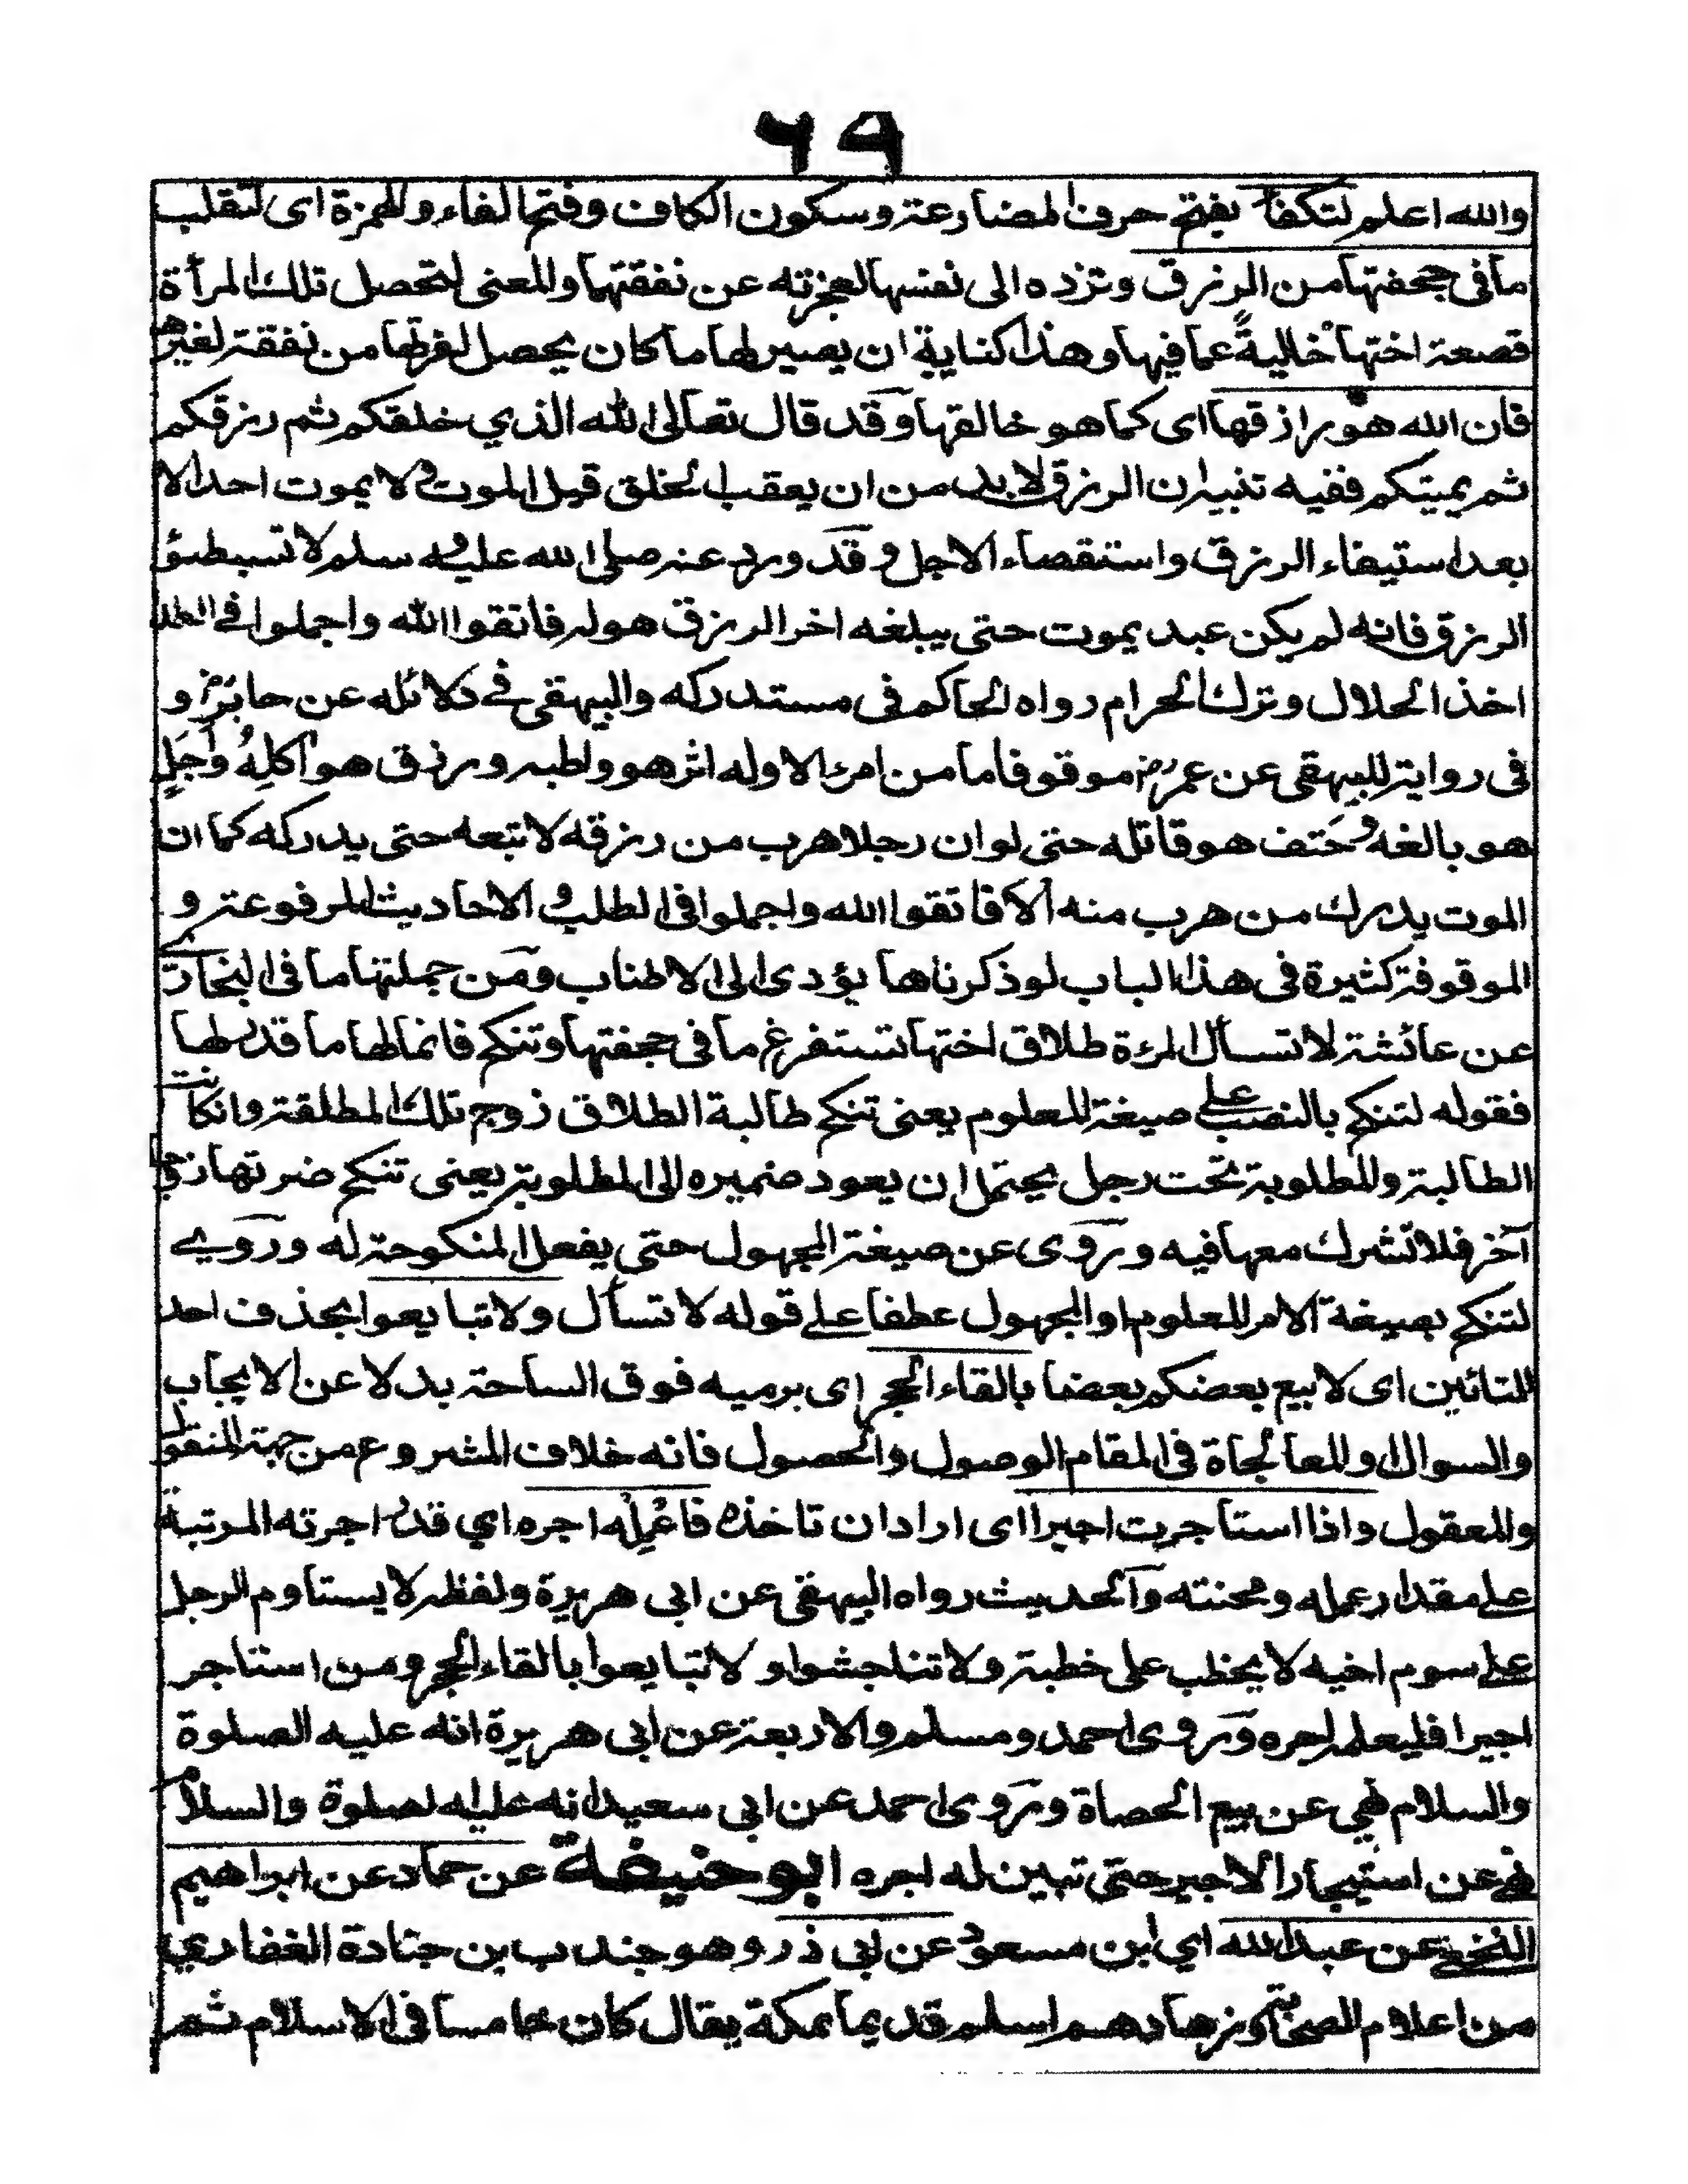 ٦٩
والله اعلم لتكفأ بفتح حرف المضارعة وسكون الكاف وفتح الفاء والهمزة اى لتقلب
ما فى صحفتها من الرزق وتزده الى نفسها لعجزته عن نفقتها والمعنى لتحصل تلك المرأة
قصعة اختها خاليةً عما فيها وهذا كناية ان يصير لها ما كان يحصل لضرتها من نفقة لغيرها
فان الله هو رازقها اى كما هو خالقها وقد قال تعالى الله الذي خلقكم ثم رزقكم
ثم يميتكم ففيه تنبيه ان الرزق لا بد من ان يعقب الخلق قبل الموت ولا يموت احد الا
بعد استيفاء الرزق واستقصاء الاجل وقد ورد عنه صلى الله عليه وسلم لا تستبطئو
الرزق فانه لم يكن عبد يموت حتى يبلغه اخر الرزق هوله فاتقوا الله واجملوا فى الطلب
اخذ الحلال وترك الحرام رواه الحاكم فى مستدركه والبيهقى فے دلائله عن جابرؓ و
فى رواية للبيهقى عن عمرؓ موقوفا ما من امرء الا وله اثر هو واطيه ورزق هو اٰكلِهُ وَاَجَلٍ
هو بالغه وحَتف هو قاتله حتى لو ان رجلا هرب من رزقه لا تبعه حتى يدركه كما ان
الموت يدرك من هرب منه الا فاتقوا الله واجملوا فى الطلب والاحاديث المرفوعة و
الموقوفة كثيرة فى هذا الباب لو ذكرناها يؤدى الى الاطناب ومن جملتها ما فى البخارى
عن عائشة لا تسأل المرءة طلاق اختها تستفرغ ما فى صحفتها وتنكح فانما لها ما قدر لها
فقوله لتنكح بالنصب على صيغة المعلوم يعنى تنكح طالبة الطلاق زوج تلك المطلقة وانكانت
الطالبة والمطلوبة تحت رجل يحتمل ان يعود ضميره الى المطلوبة يعنى تنكح ضرتها زوجا
آخر فلا تشرك معها فيه وروى عن صيغة المجهول حتى يفعل المنكوحة له وروے
لتنكح بصيغة الامر المعلوم او المجهول عطفا على قوله لا تسأل ولا تبايعوا بحذف احد
التائين اى لا بيع بعضكم بعضا بالقاء الحجر اى برميه فوق الساحة بدلا عن الايجاب
والسوال والمعالجاة فى المقام الوصول والحصول فانه خلاف المشروع من جهة المنقول
والمعقول واذا استاجرت اجيرا اى اراد ان تاخذه فاعْلِمْه اجره اي قدر اجرته المرتبة
على مقدار عمله ومحنته والحديث رواه البيهقى عن ابى هريرة ولفظه لا يستاوم الرجل
على سوم اخيه لا يخطب على خطبته ولا تناجشوا ولا تبايعوا بالقاء الحجر ومن استاجر
اجيرا فليعلمه اجره وروى احمد ومسلم والاربعة عن ابى هريرة انه عليه الصلوة
والسلام نهي عن بيع الحصاة وروى احمد عن ابى سعيد انه عليه لصلوة والسلام
نهى عن استيجار الاجير حتى تبين له اجره ابو حنيفة عن حماد عن ابراهيم
النخعى عن عبد الله اي ابن مسعود عن ابى ذر وهو جندب بن جنادة الغفاري
من اعلام الصحابة وزهادهم اسلم قديما بمكة يقال كان خامسا فى الاسلام ثم